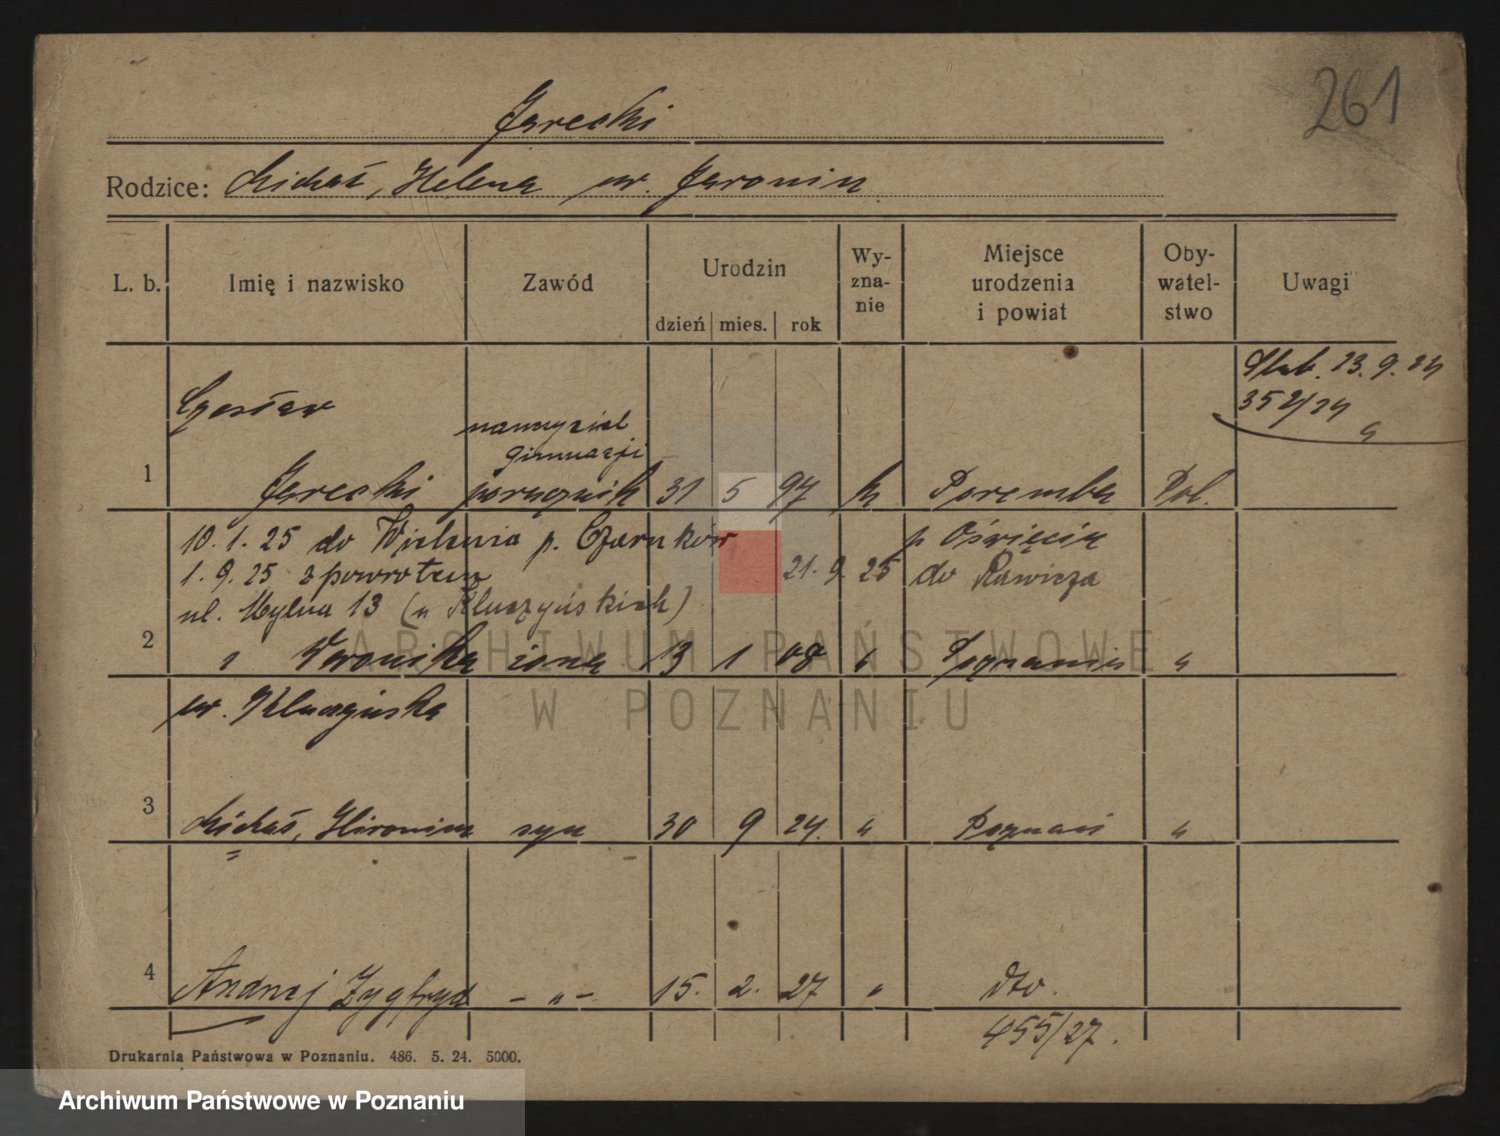 261
Jarecki
Rodzice: Michał, Helena ur. Jaronin
L. b. Imię i nazwisko Zawód Urodzin dzień mies. rok Wy-zna-nie Miejsce urodzenia i powiat Oby-watel-stwo Uwagi
23. 9. 24
352/24
Czesław
nauczyciel
gimnazji
1 Jarecki porucznik 31 5 97 k Poremba Pol.
10. 1. 25 do Wielenia p. Czarnków p Oświęcim
1. 9. 25 z powrotem 21. 9. 25 do Rawicza
ul. Mylna 13 (u Kluczyńskich)
2 " Weronika żona 13 1 08 " Poznania "
ur. Kluczyńska
3 Michał, Hieronim syn 30 9 24. " Poznań "
4 Andrzej Zygfryd — " — 15. 2. 27 " dto.
455/27.
Drukarnia Państwowa w Poznaniu. 486. 5. 24. 5000.
ARCHIWUM PAŃSTWOWE
W POZNANIU
Archiwum Państwowe w Poznaniu